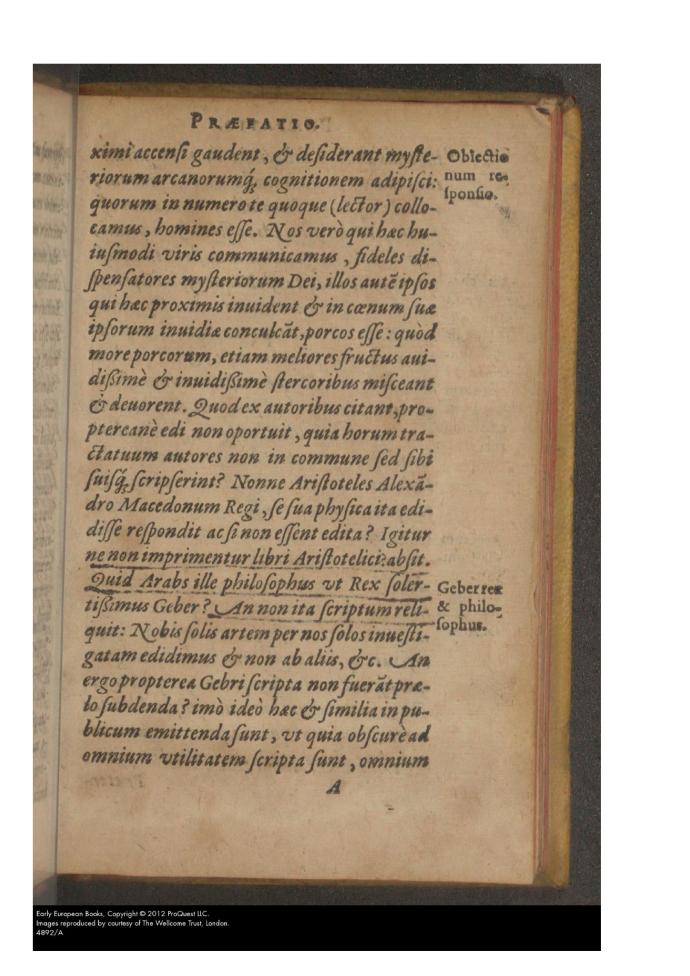 PRÆFATIO.
ximi accensi gaudent, & desiderant myste-
riorum arcanorumq́; cognitionem adipisci:
quorum in numero te quoque (lector) collo-
camus, homines esse. Nos verò qui hæc hu-
iusmodi viris communicamus, fideles di-
spensatores mysteriorum Dei, illos autē ipsos
qui hæc proximis inuident & in cœnum suæ
ipsorum inuidiæ conculcāt, porcos esse: quòd
more porcorum, etiam meliores fructus aui-
dißimè & inuidißimè stercoribus misceant
& deuorent. Quod ex autoribus citant, pro-
ptereanè edi non oportuit, quia horum tra-
ctatuum autores non in commune sed sibi
suisq́; scripserint? Nonne Aristoteles Alexā-
dro Macedonum Regi, se sua physica ita edi-
disse respondit ac si non essent edita? Igitur
ne non imprimentur libri Aristotelici? absit.
Quid Arabs ille philosophus vt Rex soler-
tißimus Geber? An non ita scriptum reli-
quit: Nobis solis artem per nos solos inuesti-
gatam edidimus & non ab aliis, &c. An
ergo propterea Gebri scripta non fuerāt præ-
lo subdenda? imò ideò hæc & similia in pu-
blicum emittenda sunt, vt quia obscurè ad
omnium vtilitatem scripta sunt, omnium
A
Obiectio
num re-
sponsio.
Geber rex
& philo-
sophus.
Early European Books, Copyright © 2012 ProQuest LLC.
Images reproduced by courtesy of The Wellcome Trust, London.
4892/A